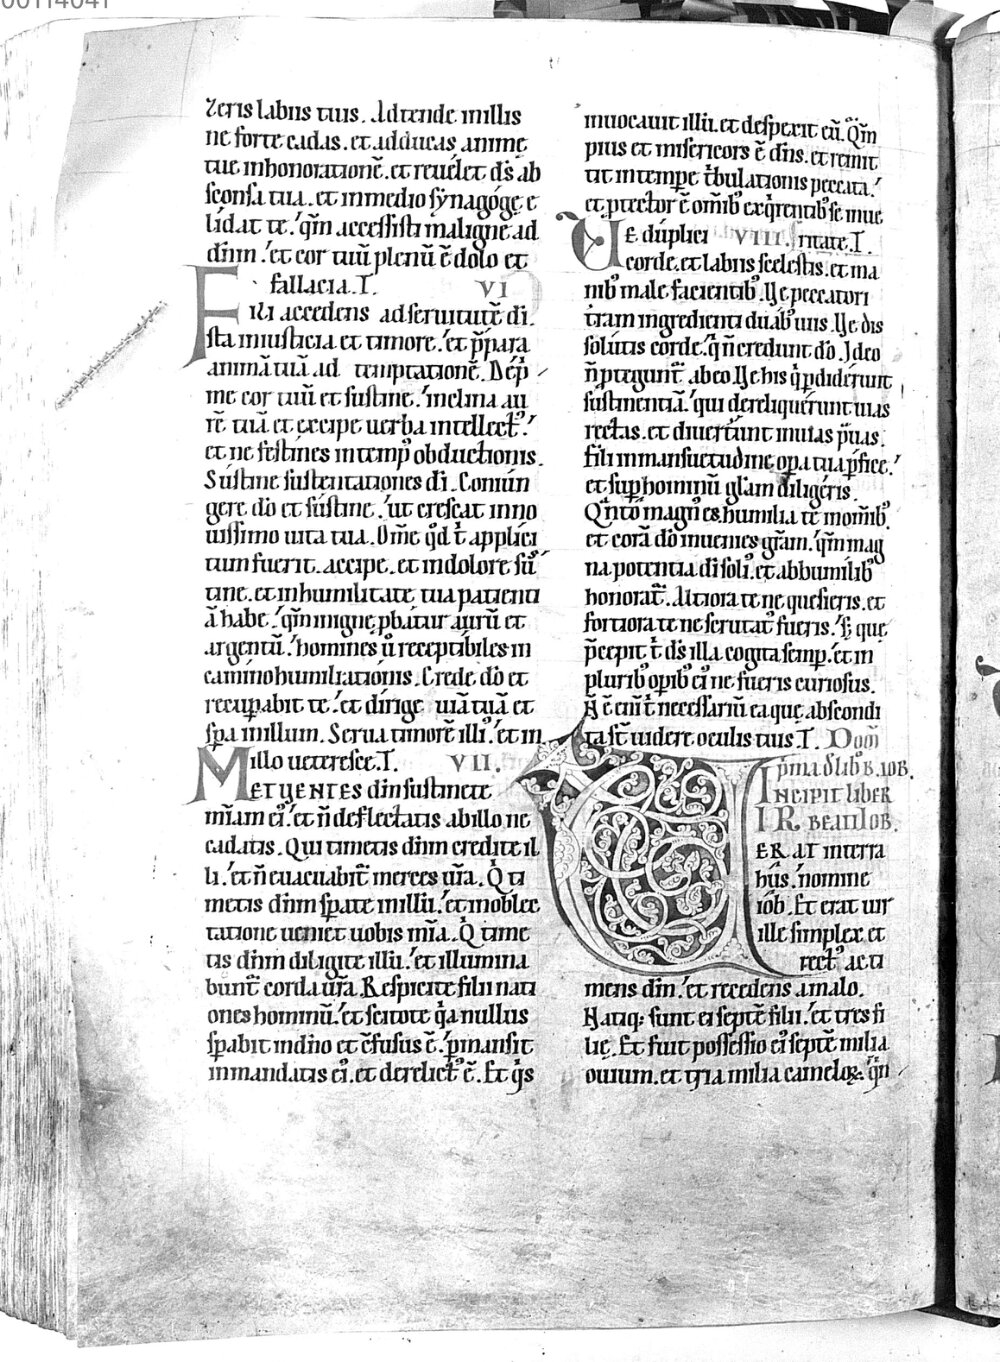 00114041
zeris labiis tuis. Adtende in illis
ne forte cadas. et adducas anime
tue inhonoratioñe. et reuelet d̄s ab
sconsa tua. et in medio synagoge e
lidat te. q̄m accessisti maligne ad
dn̄m. et cor tuū plenū ē dolo et
fallacia. I. VI
Fili accedens ad seruitutē di.
sta in iusticia et timore. et p̄para
animā tuā ad temptationē. Dep̄
me cor tuū et sustine. inclina au
rē tuā et excipe uerba intellect᷒.
et ne festines in temp᷒ obductionis.
Sustine sustentationes di. Coniun
gere dō et sustine. ut crescat in no
uissimo uita tua. Om̄e qd t̄ applici
tum fuerit. accipe. et in dolore sū
tine. et in humilitate tua patienti
ā habe. q̄m in igne pbātur aurū et
argentū. homines ū receptibiles in
camino humiliationis. Crede dō et
recupabit te. et dirige uiā tuā et
spa in illum. Serua timorē illi᷒. et in
illo ueteresce. I. VII.
METUENTES dn̄m sustinete
mīam ei᷒. et n̄ deflectatis ab illo ne
cadatis. Qui timetis dn̄m credite il
li. et n̄ euacuabit᷑ merces ur̄a. Q ti
metis dn̄m spate in illū. et in oblec
tatione ueniet uobis mīa. Q time
tis dn̄m diligite illū. et illumina
bunt᷑ corda ur̄a. Respicite filii nati
ones hominū. et scitote qa nullus
spabit in dn̄o et c̄fusus ē. pmansit
in mandatis ei᷒. et derelict᷒ ē. Et q̄s
inuocauit illū. et despexit eū. Qm̄
pius et misericors ē dn̄s. et remit
tit in tempe t̄bulationis peccata.
et ptector ē omīb᷒ exqrentib᷒ se in ue
Ue duplici VIII. ritate. I.
corde. et labiis scelestis. et ma
nib᷒ male facientib᷒. Ue peccatori
t̄ram ingredienti duab᷒ uiis. Ue dis
solutis corde. q n̄ credunt dō. Ideo
n̄ ptegunt᷑ ab eo. Ue his q pdiderunt
sustinentiā. qui dereliquerunt uias
rectas. et diuerterunt in uias p̄uas.
Fili in mansuetudine opa tua pfice.
et sup hominū glām diligeris.
Qn̄to magn᷒ es. humilia te in omīb᷒.
et corā dō inuenies grām. q̄m mag
na potentia di soli᷒. et ab humilib᷒
honorat᷑. Altiora te ne quesieris. et
fortiora te ne scrutat᷒ fueris. S; que
p̄cepit t̄ d̄s illa cogita semp. et in
plurib᷒ opib᷒ ei᷒ ne fueris curiosus.
N̄ ē eni t̄ necessariū ea que abscondi
ta st̄ uidere oculis tuis. I. Dom̄
I pma
INCIPIT LIBER
BEATI IOB.
ERAT in terra
hus. nomine
iob. Et erat uir
ille simplex et
rect᷒ ac ti
mens dn̄. et recedens a malo.
Natiq; sunt ei septē filii. et tres fi
lie. Et fuit possessio ei᷒ septē milia
ouium. et tria milia cameloꝝ. qn̄